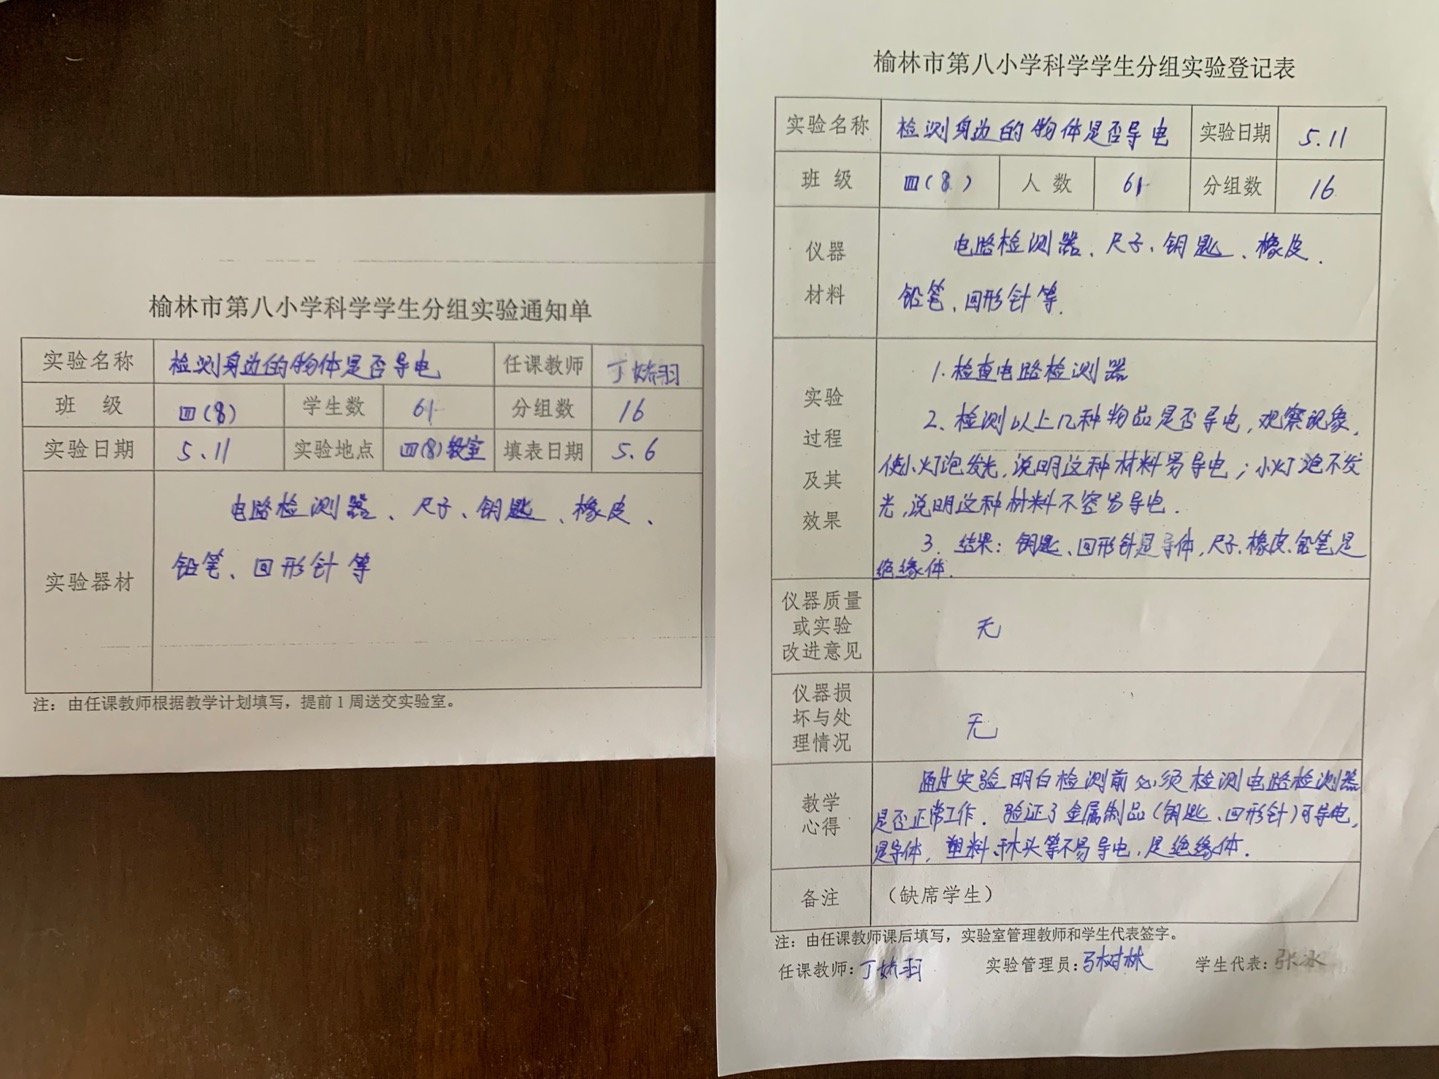 榆林市第八小学科学学生分组实验通知单
实验名称 检测身边的物体是否导电 任课教师 丁娇羽
班 级 四(8) 学生数 61 分组数 16
实验日期 5.11 实验地点 四(8)教室 填表日期 5.6
实验器材
电路检测器、尺子、钥匙、橡皮、
铅笔、回形针等
注：由任课教师根据教学计划填写，提前1周送交实验室。
榆林市第八小学科学学生分组实验登记表
实验名称 检测身边的物体是否导电 实验日期 5.11
班 级 四(8) 人 数 61 分组数 16
仪器
材料
电路检测器、尺子、钥匙、橡皮、
铅笔、回形针等.
实验
过程
及其
效果
1.检查电路检测器
2、检测以上几种物品是否导电,观察现象,
使小灯泡发光,说明这种材料易导电;小灯泡不发
光,说明这种材料不容易导电.
3.结果:钥匙、回形针是导体,尺子、橡皮、铅笔是
绝缘体.
仪器质量
或实验
改进意见
无
仪器损
坏与处
理情况
无
教学
心得
通过实验明白检测前必须检测电路检测器
是否正常工作.验证了金属制品(钥匙、回形针)可导电,
是导体,塑料、木头等不易导电,是绝缘体.
备注 （缺席学生）
注：由任课教师课后填写，实验室管理教师和学生代表签字。
任课教师:丁娇羽 实验管理员: 学生代表:张冰